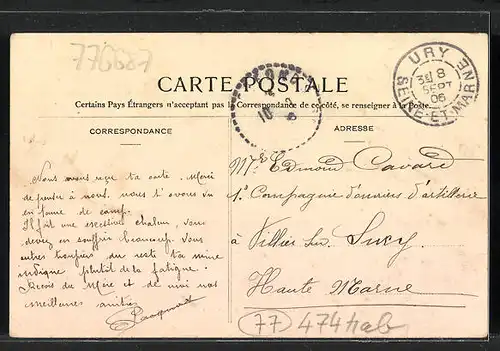 770687
CARTE POSTALE
Certains Pays Étrangers n'acceptant pas la Correspondance de ce côté, se renseigner à la Poste.
URY
3E 8
SEPT
06
SEINE-ET-MARNE
10
CORRESPONDANCE
Nous avons reçu ta carte. Merci
de penser à nous. nous t'avons vu
en tenue de camp.
Il fait une excessive chaleur, vous
devez en souffrir beaucoup. Vous
autres troupiers du reste ta mine
indique plutôt de la fatigue.
Reçois du Mère et de moi nos
meilleures amitiés
ADRESSE
Mr Edmond Cavard
1e Compagnie d'ouvriers d'artillerie
à Villier sur Sucy
Haute Marne
77 474hab